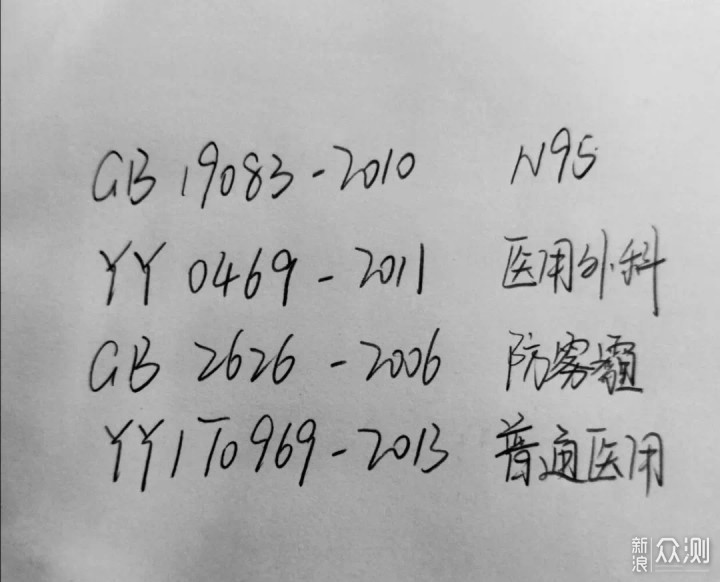 GB 19083-2010 N95
YY 0469-2011 医用外科
GB 2626-2006 防雾霾
YY/T0969-2013 普通医用
新浪众测